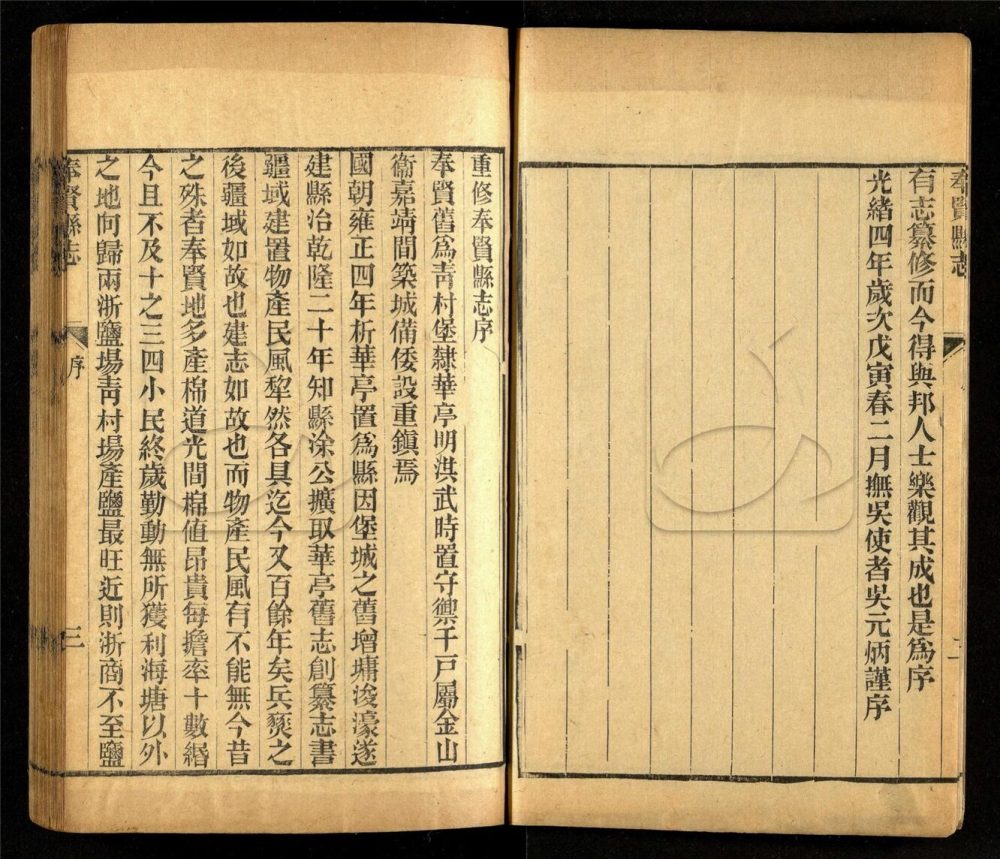 奉賢縣志
有志纂修而今得與邦人士樂觀其成也是爲序
光緒四年歲次戊寅春二月撫吳使者吳元炳謹序
二
重修奉賢縣志序
奉賢舊爲靑村堡隸華亭明洪武時置守禦千戸屬金山
衞嘉靖間築城備倭設重鎮焉
國朝雍正四年析華亭置爲縣因堡城之舊增墉浚濠遂
建縣治乾隆二十年知縣涂公擴取華亭舊志創纂志書
疆域建置物產民風犂然各具迄今又百餘年矣兵燹之
後疆域如故也建志如故也而物產民風有不能無今昔
之殊者奉賢地多產棉道光間棉值昂貴每擔率十數緡
今且不及十之三四小民終歲勤動無所獲利海塘以外
之地向歸兩浙鹽場靑村場產鹽最旺近則浙商不至鹽
奉賢縣志
序
三